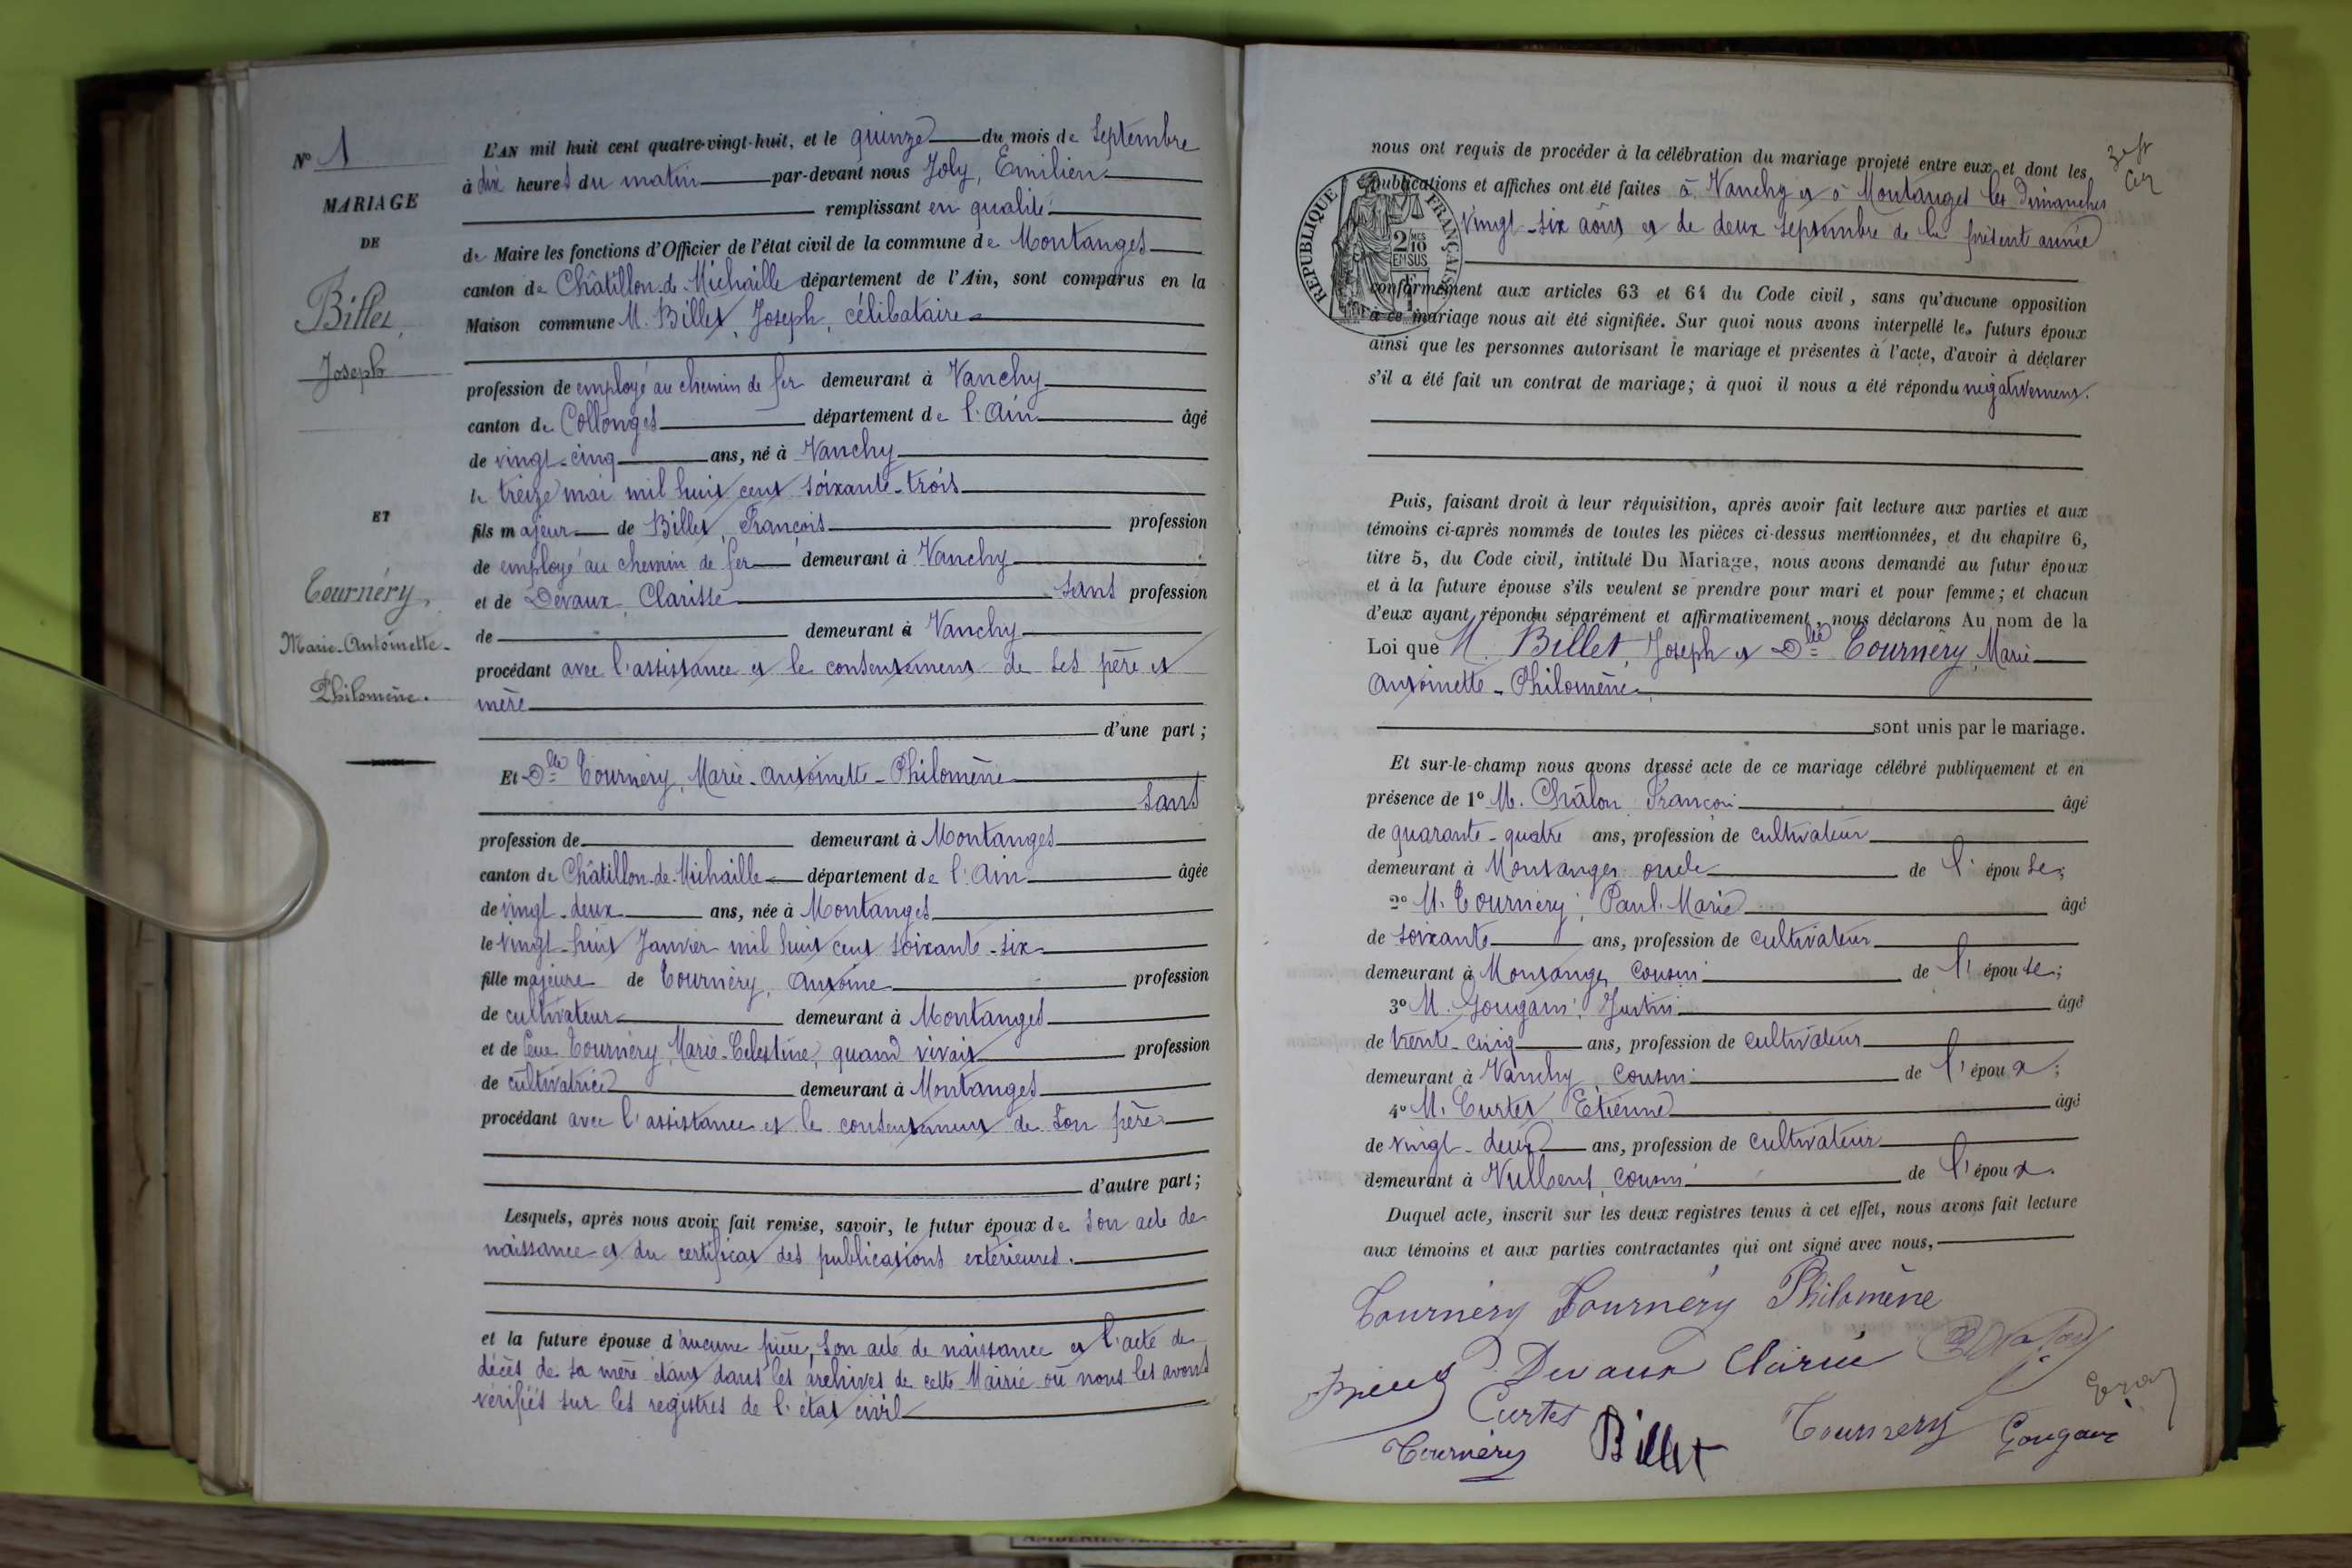 N° 1
MARIAGE
DE
Billet,
Joseph
ET
Tournéry,
Marie-Antoinette-
Philomène.
L'AN mil huit cent quatre-vingt-huit, et le quinze du mois de Septembre
à dix heures du matin par-devant nous Joly, Emilien
remplissant en qualité
de Maire les fonctions d'Officier de l'état civil de la commune de Montanges
canton de Châtillon-de-Michaille département de l'Ain, sont comparus en la
Maison commune M. Billet, Joseph, célibataire
profession de employé au chemin de fer demeurant à Vanchy
canton de Collonges département de l'Ain âgé
de vingt-cinq ans, né à Vanchy
le treize mai mil huit cent soixante-trois
fils majeur de Billet, François profession
de employé au chemin de fer demeurant à Vanchy
et de Devaux, Clarisse sans profession
de demeurant à Vanchy
procédant avec l'assistance et le consentement de ses père et
mère
d'une part;
Et Dlle Tournéry, Marie-Antoinette-Philomène
sans
profession de demeurant à Montanges
canton de Châtillon-de-Michaille département de l'Ain âgée
de vingt-deux ans, née à Montanges
le vingt-huit Janvier mil huit cent soixante-six
fille majeure de Tournéry, Antoine profession
de cultivateur demeurant à Montanges
et de feue Tournéry, Marie-Célestine, quand vivait profession
de cultivatrice demeurant à Montanges
procédant avec l'assistance et le consentement de son père
d'autre part;
Lesquels, après nous avoir fait remise, savoir, le futur époux de son acte de
naissance et du certificat des publications extérieures.
et la future épouse d'aucune pièce, son acte de naissance et l'acte de
décès de sa mère étant dans les archives de cette Mairie où nous les avons
vérifiés sur les registres de l'état civil
nous ont requis de procéder à la célébration du mariage projeté entre eux et dont les
publications et affiches ont été faites à Vanchy et à Montanges les Dimanches
vingt-six août et de deux septembre de la présente année
RÉPUBLIQUE FRANÇAISE
2/10 MES
EN SUS
conformément aux articles 63 et 64 du Code civil, sans qu'aucune opposition
à ce mariage nous ait été signifiée. Sur quoi nous avons interpellé les futurs époux
ainsi que les personnes autorisant le mariage et présentes à l'acte, d'avoir à déclarer
s'il a été fait un contrat de mariage; à quoi il nous a été répondu négativement.
Puis, faisant droit à leur réquisition, après avoir fait lecture aux parties et aux
témoins ci-après nommés de toutes les pièces ci-dessus mentionnées, et du chapitre 6,
titre 5, du Code civil, intitulé Du Mariage, nous avons demandé au futur époux
et à la future épouse s'ils veulent se prendre pour mari et pour femme; et chacun
d'eux ayant répondu séparément et affirmativement, nous déclarons Au nom de la
Loi que M. Billet, Joseph et Dlle Tournéry, Marie
Antoinette-Philomène
sont unis par le mariage.
Et sur-le-champ nous avons dressé acte de ce mariage célébré publiquement et en
présence de 1° M. Châlon François âgé
de quarante-quatre ans, profession de cultivateur
demeurant à Montanges oncle de l'épouse;
2° M. Tournéry, Paul-Marie âgé
de soixante ans, profession de cultivateur
demeurant à Montanges, cousin de l'épouse;
3° M. Gougain, Justin âgé
de trente-cinq ans, profession de cultivateur
demeurant à Vanchy, cousin de l'époux;
4° M. Curtet Etienne âgé
de vingt-deux ans, profession de cultivateur
demeurant à Vulbens, cousin de l'époux.
Duquel acte, inscrit sur les deux registres tenus à cet effet, nous avons fait lecture
aux témoins et aux parties contractantes qui ont signé avec nous,
Tournéry Tournéry Philomène
Devaux Clarice
Curtet
Tournéry Billet Tournery Gougain